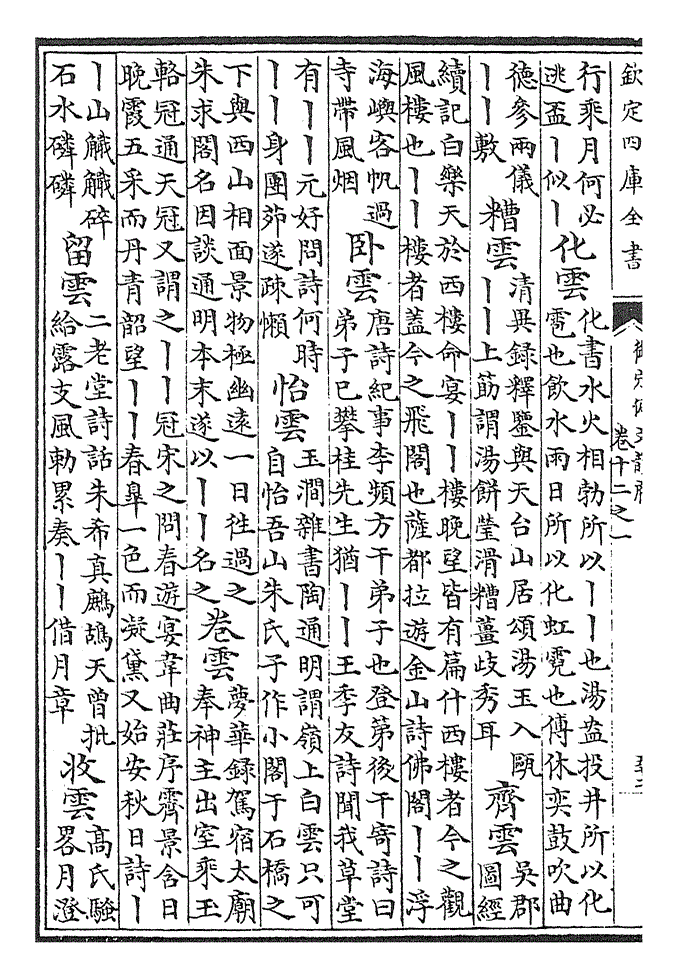 欽定四庫全書
御定佩文韻府
卷十二之一
行乘月何必
逃盃丨似丨
化雲
化書水火相勃所以丨丨也湯盎投井所以化
雹也飲水雨日所以化虹霓也傅休奕鼓吹曲
德參兩儀
丨丨敷
糟雲
清異録釋鑒與天台山居頌湯玉入甌
丨丨上筯謂湯餅瑩滑糟薑歧秀耳
齊雲
吳郡
圖經
續記白樂天於西樓命宴丨丨樓晚望皆有篇什西樓者今之觀
風樓也丨丨樓者蓋今之飛閣也薩都拉遊金山詩佛閣丨丨浮
海嶼客帆過
寺帶風烟
卧雲
唐詩紀事李頻方干弟子也登第後干寄詩曰
弟子已攀桂先生猶丨丨王季友詩聞我草堂
有丨丨元好問詩何時
丨丨身團茆遂疎懶
怡雲
玉澗雜書陶通明謂嶺上白雲只可
自怡吾山朱氏子作小閣于石橋之
下與西山相面景物極幽遠一日徃過之
朱求閣名因談通明本末遂以丨丨名之
卷雲
夢華録駕宿太廟
奉神主出室乘玉
輅冠通天冠又謂之丨丨冠宋之問春遊宴韋曲莊序霽景含日
晚霞五采而丹青韶望丨丨春臯一色而凝黛又始安秋日詩丨
丨山觿觿碎
石水磷磷
留雲
二老堂詩話朱希真鷓鴣天曾批
給露支風勅累奏丨丨借月章
收雲
高氏騷
畧月澄